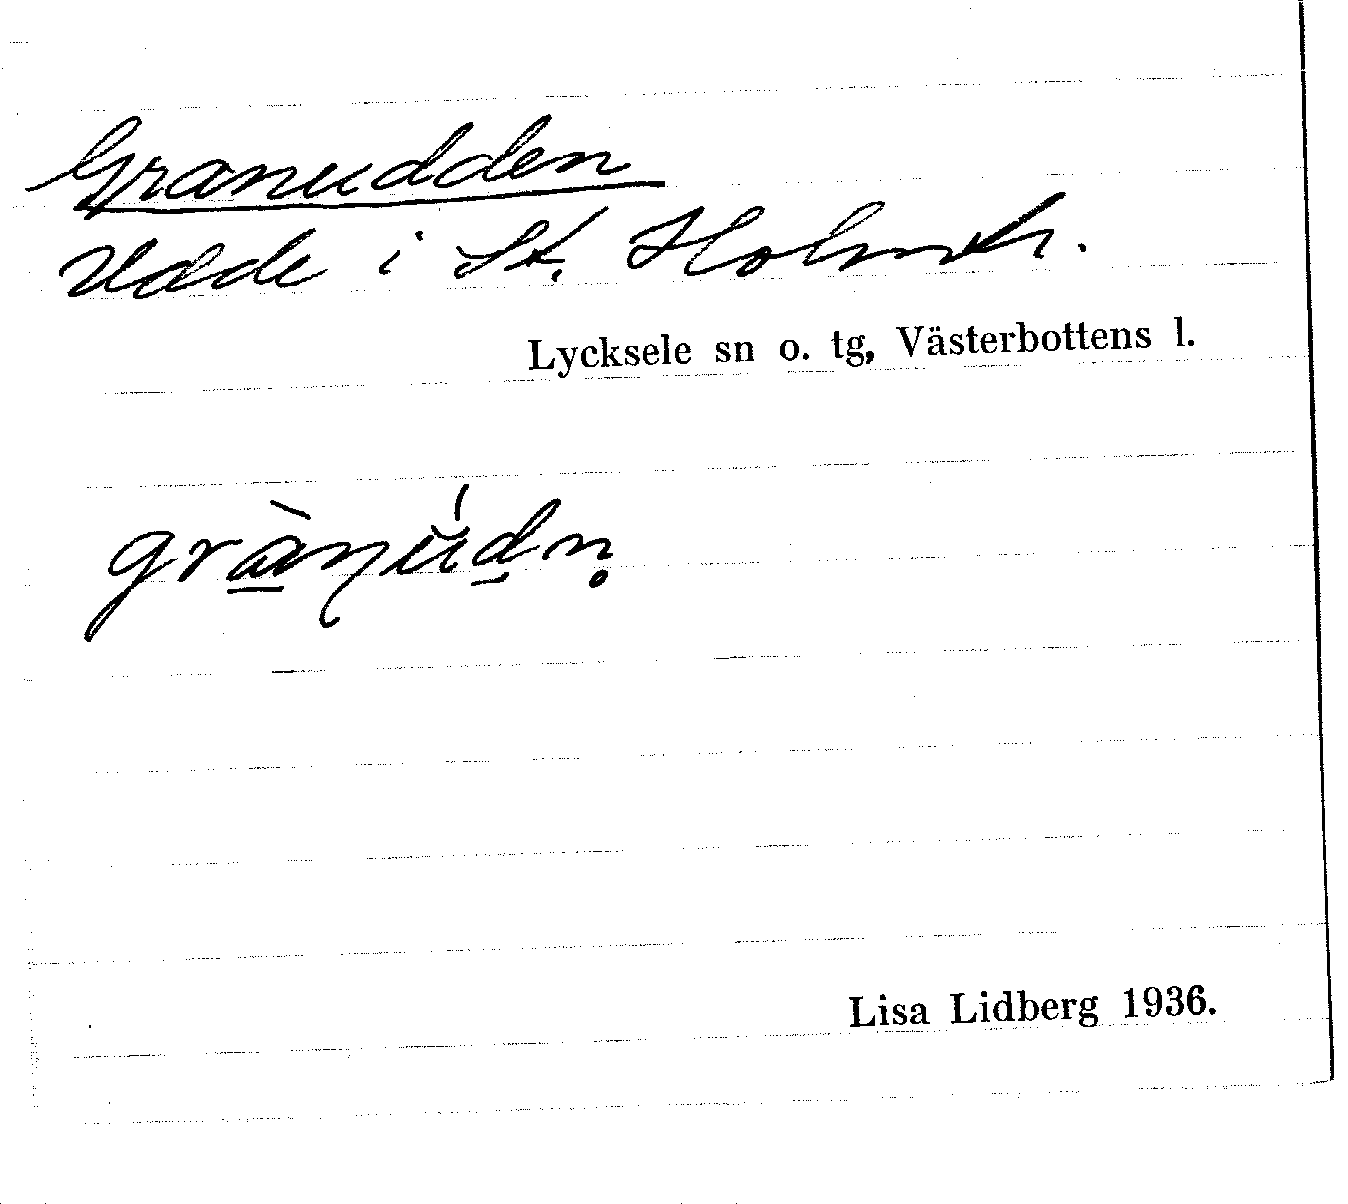 Granudden
Udde i St. Holmtr.
Lycksele sn o. tg, Västerbottens l.
grànúdn̥
Lisa Lidberg 1936.